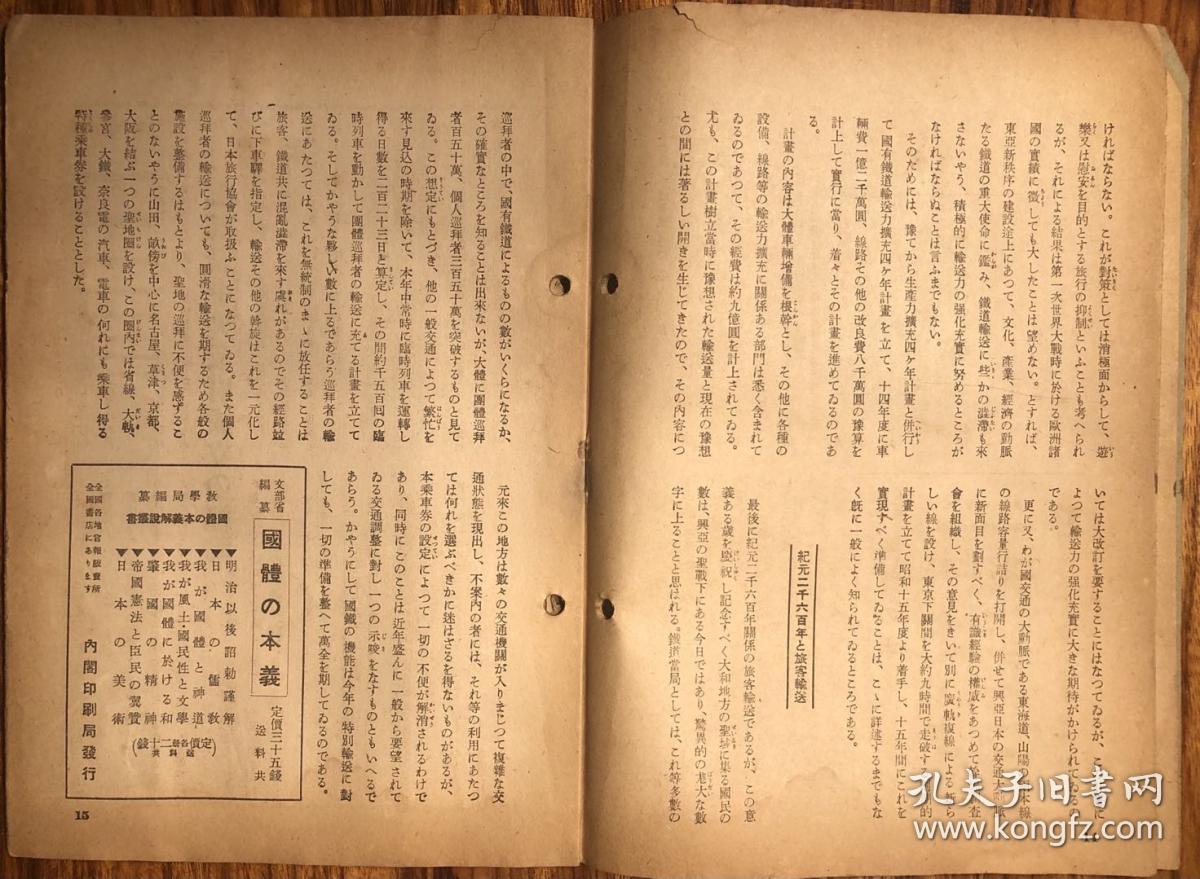 ければならない。これが對策としては消極面からして、遊
樂又は慰安を目的とする旅行の抑制といふことも考へられ
るが、それによる結果は第一次世界大戰時に於ける歐洲諸
國の實績に徴しても大したことは望めない。とすれば、
東亞新秩序の建設途上にあつて、文化、產業、經濟の動脈
たる鐵道の重大使命に鑑み、鐵道輸送に些かの澁滯も來
さないやう、積極的に輸送力の强化充實に努めるところが
なければならぬことは言ふまでもない。
そのためには、豫てから生產力擴充四ケ年計畫と併行し
て國有鐵道輸送力擴充四ケ年計畫を立て、十四年度に車
輛費一億二千萬圓、線路その他の改良費八千萬圓の豫算を
計上して實行に當り、着々とその計畫を進めてゐるのであ
る。
計畫の內容は大體車輛增備を根幹とし、その他に各種の
設備、線路等の輸送力擴充に關係ある部門は悉く含まれて
ゐるのであつて、その經費は約九億圓を計上されてゐる。
尤も、この計畫樹立當時に豫想された輸送量と現在の豫想
との間には著るしい開きを生じてきたので、その內容につ
いては大改訂を要することにはなつてゐるが、こ
よつて輸送力の强化充實に大きな期待がかけられてゐるの
である。
更に又、わが國交通の大動脈である東海道、山陽の
の線路容量行詰りを打開し、併せて興亞日本の交通
に新面目を劃すべく、有識經驗の權威をあつめて
會を組織し、その意見をきいて別に廣軌複線による
しい線を設け、東京下關間を大約九時間で走破す
計畫を立てて昭和十五年度より着手し、十五年間にこれを
實現すべく準備してゐることは、こゝに詳述するまでもな
く旣に一般によく知られてゐるところである。
紀元二千六百年と旅客輸送
最後に紀元二千六百年關係の旅客輸送であるが、この意
義ある歲を慶祝し記念すべく大和地方の聖域に集る國民の
數は、興亞の聖戰下にある今日ではあり、驚異的の尨大な數
字に上ることと思はれる。鐵道當局としては、これ等多數の
巡拜者の中で、國有鐵道によるものの數がいくらになるか、
その確實なところを知ることは出來ないが、大體に團體巡拜
者百五十萬、個人巡拜者三百五十萬を突破するものと見て
ゐる。この想定にもとづき、他の一般交通によつて繁忙を
來す見込の時期を除いて、本年中常時に臨時列車を運轉し
得る日數を二百二十三日と算定し、その間約千五百回の臨
時列車を動かして團體巡拜者の輸送に充てる計畫を立てて
ゐる。そしてかやうな夥しい數に上るであらう巡拜者の輸
送にあたつては、これを無統制のまゝに放任することは
旅客、鐵道共に混亂澁滯を來す虞れがあるのでその經路竝
びに下車驛を指定し、輸送その他の斡旋はこれを一元化し
て、日本旅行協會が取扱ふことになつてゐる。また個人
巡拜者の輸送についても、圓滑な輸送を期するため各般の
施設を整備するはもとより、聖地の巡拜に不便を感ずるこ
とのないやうに山田、畝傍を中心に名古屋、草津、京都、
大阪を結ぶ一つの聖地圈を設け、この圈內では省線、大軌、
參宮、大鐵、奈良電の汽車、電車の何れにも乘車し得る
特種乘車券を設けることとした。
元來この地方は數々の交通機關が入りまじつて複雜な交
通狀態を現出し、不案內の者には、それ等の利用にあたつ
ては何れを選ぶべきかに迷はざるを得ないものがあるが、
本乘車券の設定によつて一切の不便が解消されるわけで
あり、同時にこのことは近年盛んに一般から要望されて
ゐる交通調整に對し一つの示唆をなすものともいへるで
あらう。かやうにして國鐵の機能は今年の特別輸送に對
しても、一切の準備を整へて萬全を期してゐるのである。
文部省
編纂
國體の本義
定價三十五錢
送料共
敎學局編纂
國體の本義解說叢書
▼明治以後詔勅謹解
▼日本の儒敎
▼我が國體と神道
▼我が風土・國民性と文學
▼我が國體に於ける和
▼肇國の精神
▼帝國憲法と臣民の翼贊
▼日本の美術
(定價各册二十錢 送料共)
全國各地官報販賣所
全國書店にあります
內閣印刷局發行
15
孔夫子旧书网
www.kongfz.com